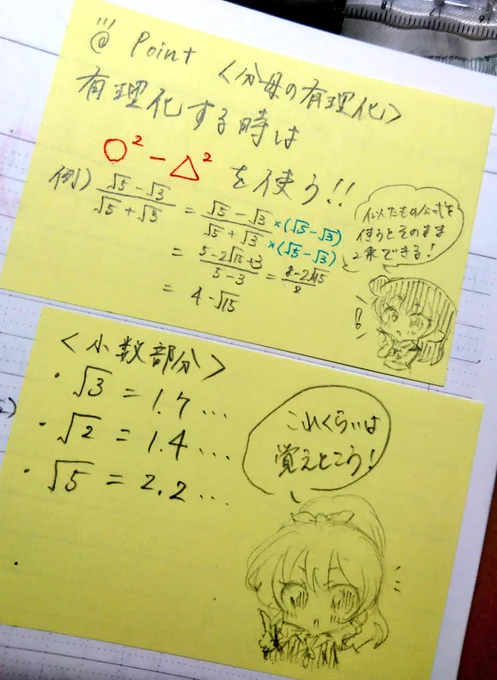 Point 〈分母の有理化〉
有理化する時は
○² − △² を使う!!
例) √5 − √3 / √5 + √3 = √5 − √3 / √5 + √3 ×(√5 − √3) ×(√5 − √3)
= 5 − 2√15 + 3 / 5 − 3 = 8 − 2√15 / 2
= 4 − √15
似たもの公式を
使うとそのまま
2乗できる!
〈小数部分〉
・√3 = 1.7...
・√2 = 1.4...
・√5 = 2.2...
これくらいは
覚えとこう!